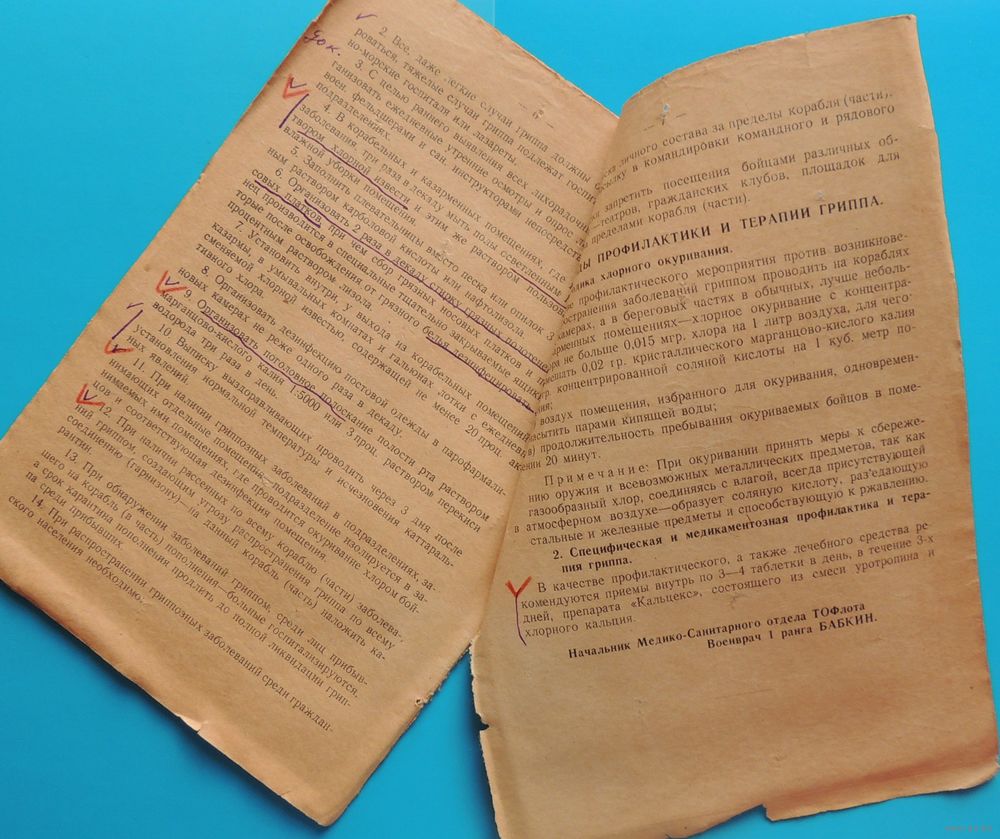 2. Все, даже легкие случаи гриппа должны
роваться, тяжелые случаи гриппа подлежат госп
но-морские госпитали или лазареты.
3. С целью раннего выявления всех лихорадо
ганизовать ежедневные утренние осмотры и опрос
воен. фельдшерами и сан. инструкторами непосредст
подразделениях.
4. В корабельных и казарменных помещениях, где
заболевания, три раза в декаду мыть полы осветленным
твором хлорной извести и этим же раствором пользов
влажной уборки помещения.
5. Заполнить плевательницы вместо песка или опилок 3
ным раствором карболовой кислоты или нафтолизола
6. Организовать 2 раза в декаду стирку грязных полотенец
совых платков, при чем сбор грязных носовых платков и
нец производится в специальные тщательно закрываемые ящи
торые после освобождения от грязного белья дезинфецировать
процентным раствором лизола
7. Установить внутри, у выхода из корабельных помещений,
казармы, в умывальных комнатах и гальюнах лотки с ежедневно
сменяемой хлорной известью, содержащей не менее 20 проц. ак
тивного хлора.
8. Организовать дезинфекцию постовой одежды в пароформали-
новых камерах не реже одного раза в декаду.
9. Организовать поголовное полоскание полости рта раствором
марганцово-кислого калия 1:5000 или 3 проц. раствором перекиси
водорода три раза в день.
10. Выписку выздоравливающих проводить через 3 дня после
установления нормальной температуры и исчезновения каттараль-
ных явлений.
11. При наличии гриппозных заболеваний в подразделениях, за-
нимающих отдельные помещения, подразделение изолируется в за-
нимаемых им помещениях, где проводится окуривание хлором бой-
цов и соответствующая дезинфекция помещения
12. При наличии рассеянных по всему кораблю (части) заболева-
ний гриппом, создающим угрозу распространения гриппа по всему
соединению (гарнизону)—на данный корабль (часть) наложить ка-
рантин.
13. При обнаружении заболеваний гриппом, среди лиц прибыв-
шего на корабль (в часть) пополнения—больные госпитализируются,
а срок карантина пополнения продлить до полной ликвидации грип-
па среди прибывших.
14. При распространении гриппозных заболеваний среди граждан-
ского населения необходимо:
личного состава за пределы корабля (части),
в командировки командного и рядового
запретить посещения бойцами различных об-
театров, гражданских клубов, площадок для
пределами корабля (части).
ПРОФИЛАКТИКИ И ТЕРАПИИ ГРИППА.
хлорного окуривания.
профилактического мероприятия против возникнове-
заболеваний гриппом проводить на кораблях
камерах, а в береговых частях в обычных, лучше неболь-
помещениях—хлорное окуривание с концентра-
не больше 0,015 мгр. хлора на 1 литр воздуха, для чего
0,02 гр. кристаллического марганцово-кислого калия
концентрированной соляной кислоты на 1 куб. метр по-
воздух помещения, избранного для окуривания, одновремен-
парами кипящей воды;
в) продолжительность пребывания окуриваемых бойцов в поме-
20 минут.
Примечание: При окуривании принять меры к сбереже-
нию оружия и всевозможных металлических предметов, так как
газообразный хлор, соединяясь с влагой, всегда присутствующей
в атмосферном воздухе—образует соляную кислоту, раз'едающую
стальные и железные предметы и способствующую к ржавлению.
2. Специфическая и медикаментозная профилактика и тера-
пия гриппа.
В качестве профилактического, а также лечебного средства ре-
комендуются приемы внутрь по 3—4 таблетки в день, в течение 3-х
дней, препарата «Кальцекс», состоящего из смеси уротропина и
хлорного кальция.
Начальник Медико-Санитарного отдела ТОФлота
Военврач 1 ранга БАБКИН.